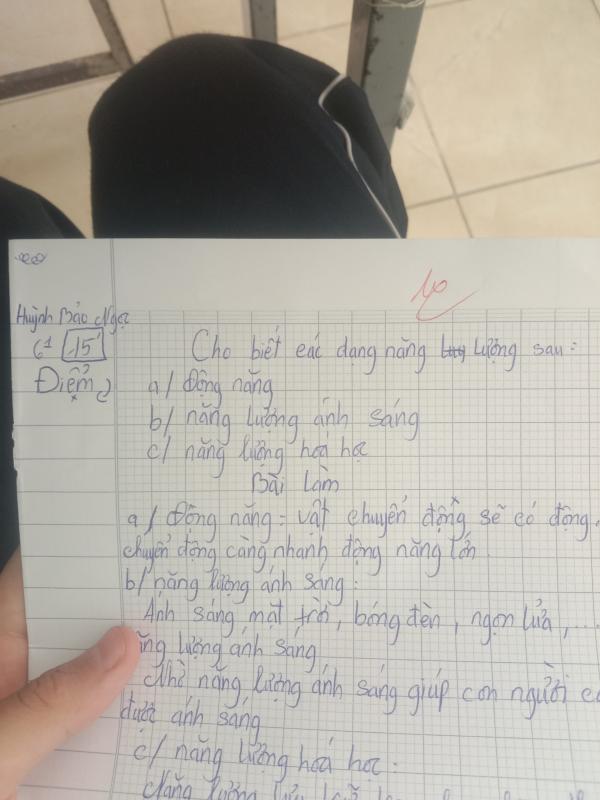 10
Huỳnh Bảo Ngọc
6¹ 15'
Điểm
Cho biết các dạng năng lượng sau:
a/ Động năng
b/ năng lượng ánh sáng
c/ năng lượng hoá học
Bài Làm
a/ Động năng: vật chuyển động sẽ có động
chuyển động càng nhanh động năng lớn.
b/ năng lượng ánh sáng:
Ánh sáng mặt trời, bóng đèn, ngọn lửa,...
năng lượng ánh sáng
Nhờ năng lượng ánh sáng giúp con người
được ánh sáng
c/ năng lượng hoá học:
Năng lượng